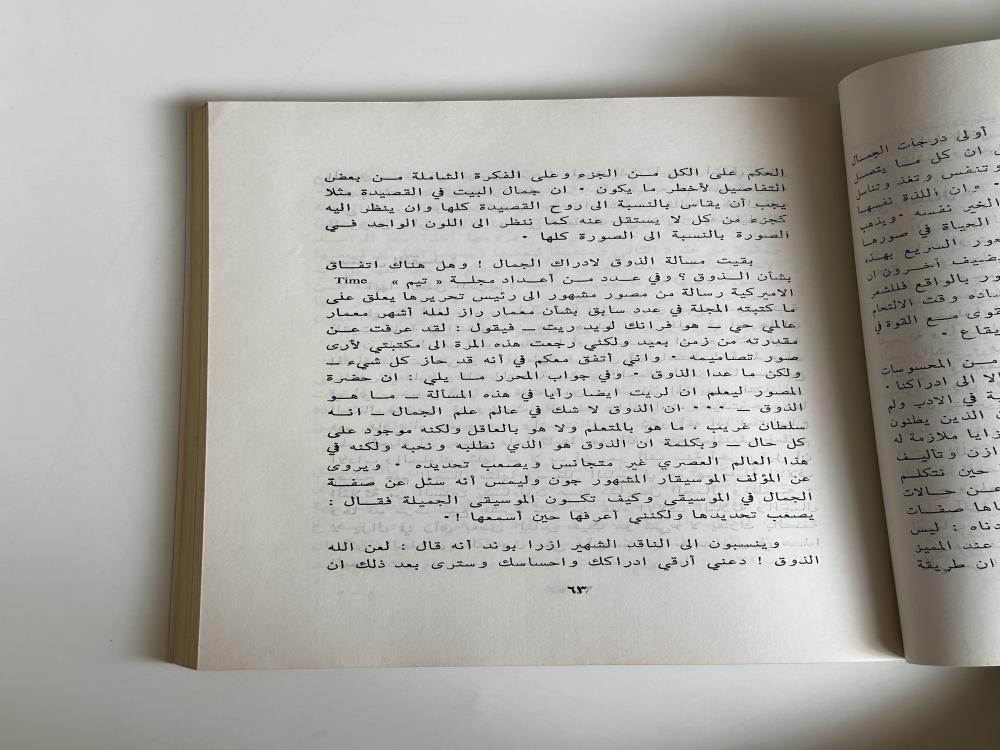 الحكم على الكل من الجزء وعلى الفكرة الشاملة من بعض
التفاصيل لأخطر ما يكون ٠ ان جمال البيت في القصيدة مثلا
يجب أن يقاس بالنسبة الى روح القصيدة كلها وان ينظر اليه
كجزء من كل لا يستقل عنه كما ننظر الى اللون الواحد في
الصورة بالنسبة الى الصورة كلها ٠
بقيت مسألة الذوق لادراك الجمال ! وهل هناك اتفاق
بشأن الذوق ؟ وفي عدد من أعداد مجلة « تيم » Time
الاميركية رسالة من مصور مشهور الى رئيس تحريرها يعلق على
ما كتبته المجلة في عدد سابق بشأن معمار راز لعله أشهر معمار
عالمي حي ـ هو فرانك لويد ريت ـ فيقول : لقد عرفت عن
مقدرته من زمن بعيد ولكني رجعت هذه المرة الى مكتبتي لأرى
صور تصاميمه ٠ واني أتفق معكم في أنه قد حاز كل شيء ـ
ولكن ما عدا الذوق ٠ وفي جواب المحرر ما يلي : ان حضرة
المصور ليعلم ان لريت ايضا رأيا في هذه المسألة ـ ما هو
الذوق ـ ٠٠٠ ان الذوق لا شك في عالم علم الجمال ـ انه
سلطان غريب . ما هو بالمتعلم ولا هو بالعاقل ولكنه موجود على
كل حال ـ وبكلمة ان الذوق هو الذي نطلبه ونحبه ولكنه في
هذا العالم العصري غير متجانس ويصعب تحديده ٠ ويروى
عن المؤلف الموسيقار المشهور جون وليمس أنه سئل عن صفة
الجمال في الموسيقى وكيف تكون الموسيقى الجميلة فقال :
يصعب تحديدها ولكنني أعرفها حين أسمعها ! ٠
وينسبون الى الناقد الشهير ازرا بوند أنه قال : لعن الله
الذوق ! دعني أرقي ادراكك واحساسك وسترى بعد ذلك ان
٦٣
أولى درجات الجمال
ان كل ما يتصل
وتنفس وتغذ وتناسل
٠ وان اللذة نفسها
الخير نفسه ٠ ويذهب
الحياة في صورها
السريع بهذه
يضيف آخرون ان
بالواقع فللشعر
وقت الالتحام
مع القوة في
يقاع ٠
من المحسوسات
الا الى ادراكنا ٠
في الادب ولم
الذين يظنون
زايا ملازمة له
ازن وتأليف
حين نتكلم
عن حالات
صفات
دناه : ليس
عند المميز
ان طريقة